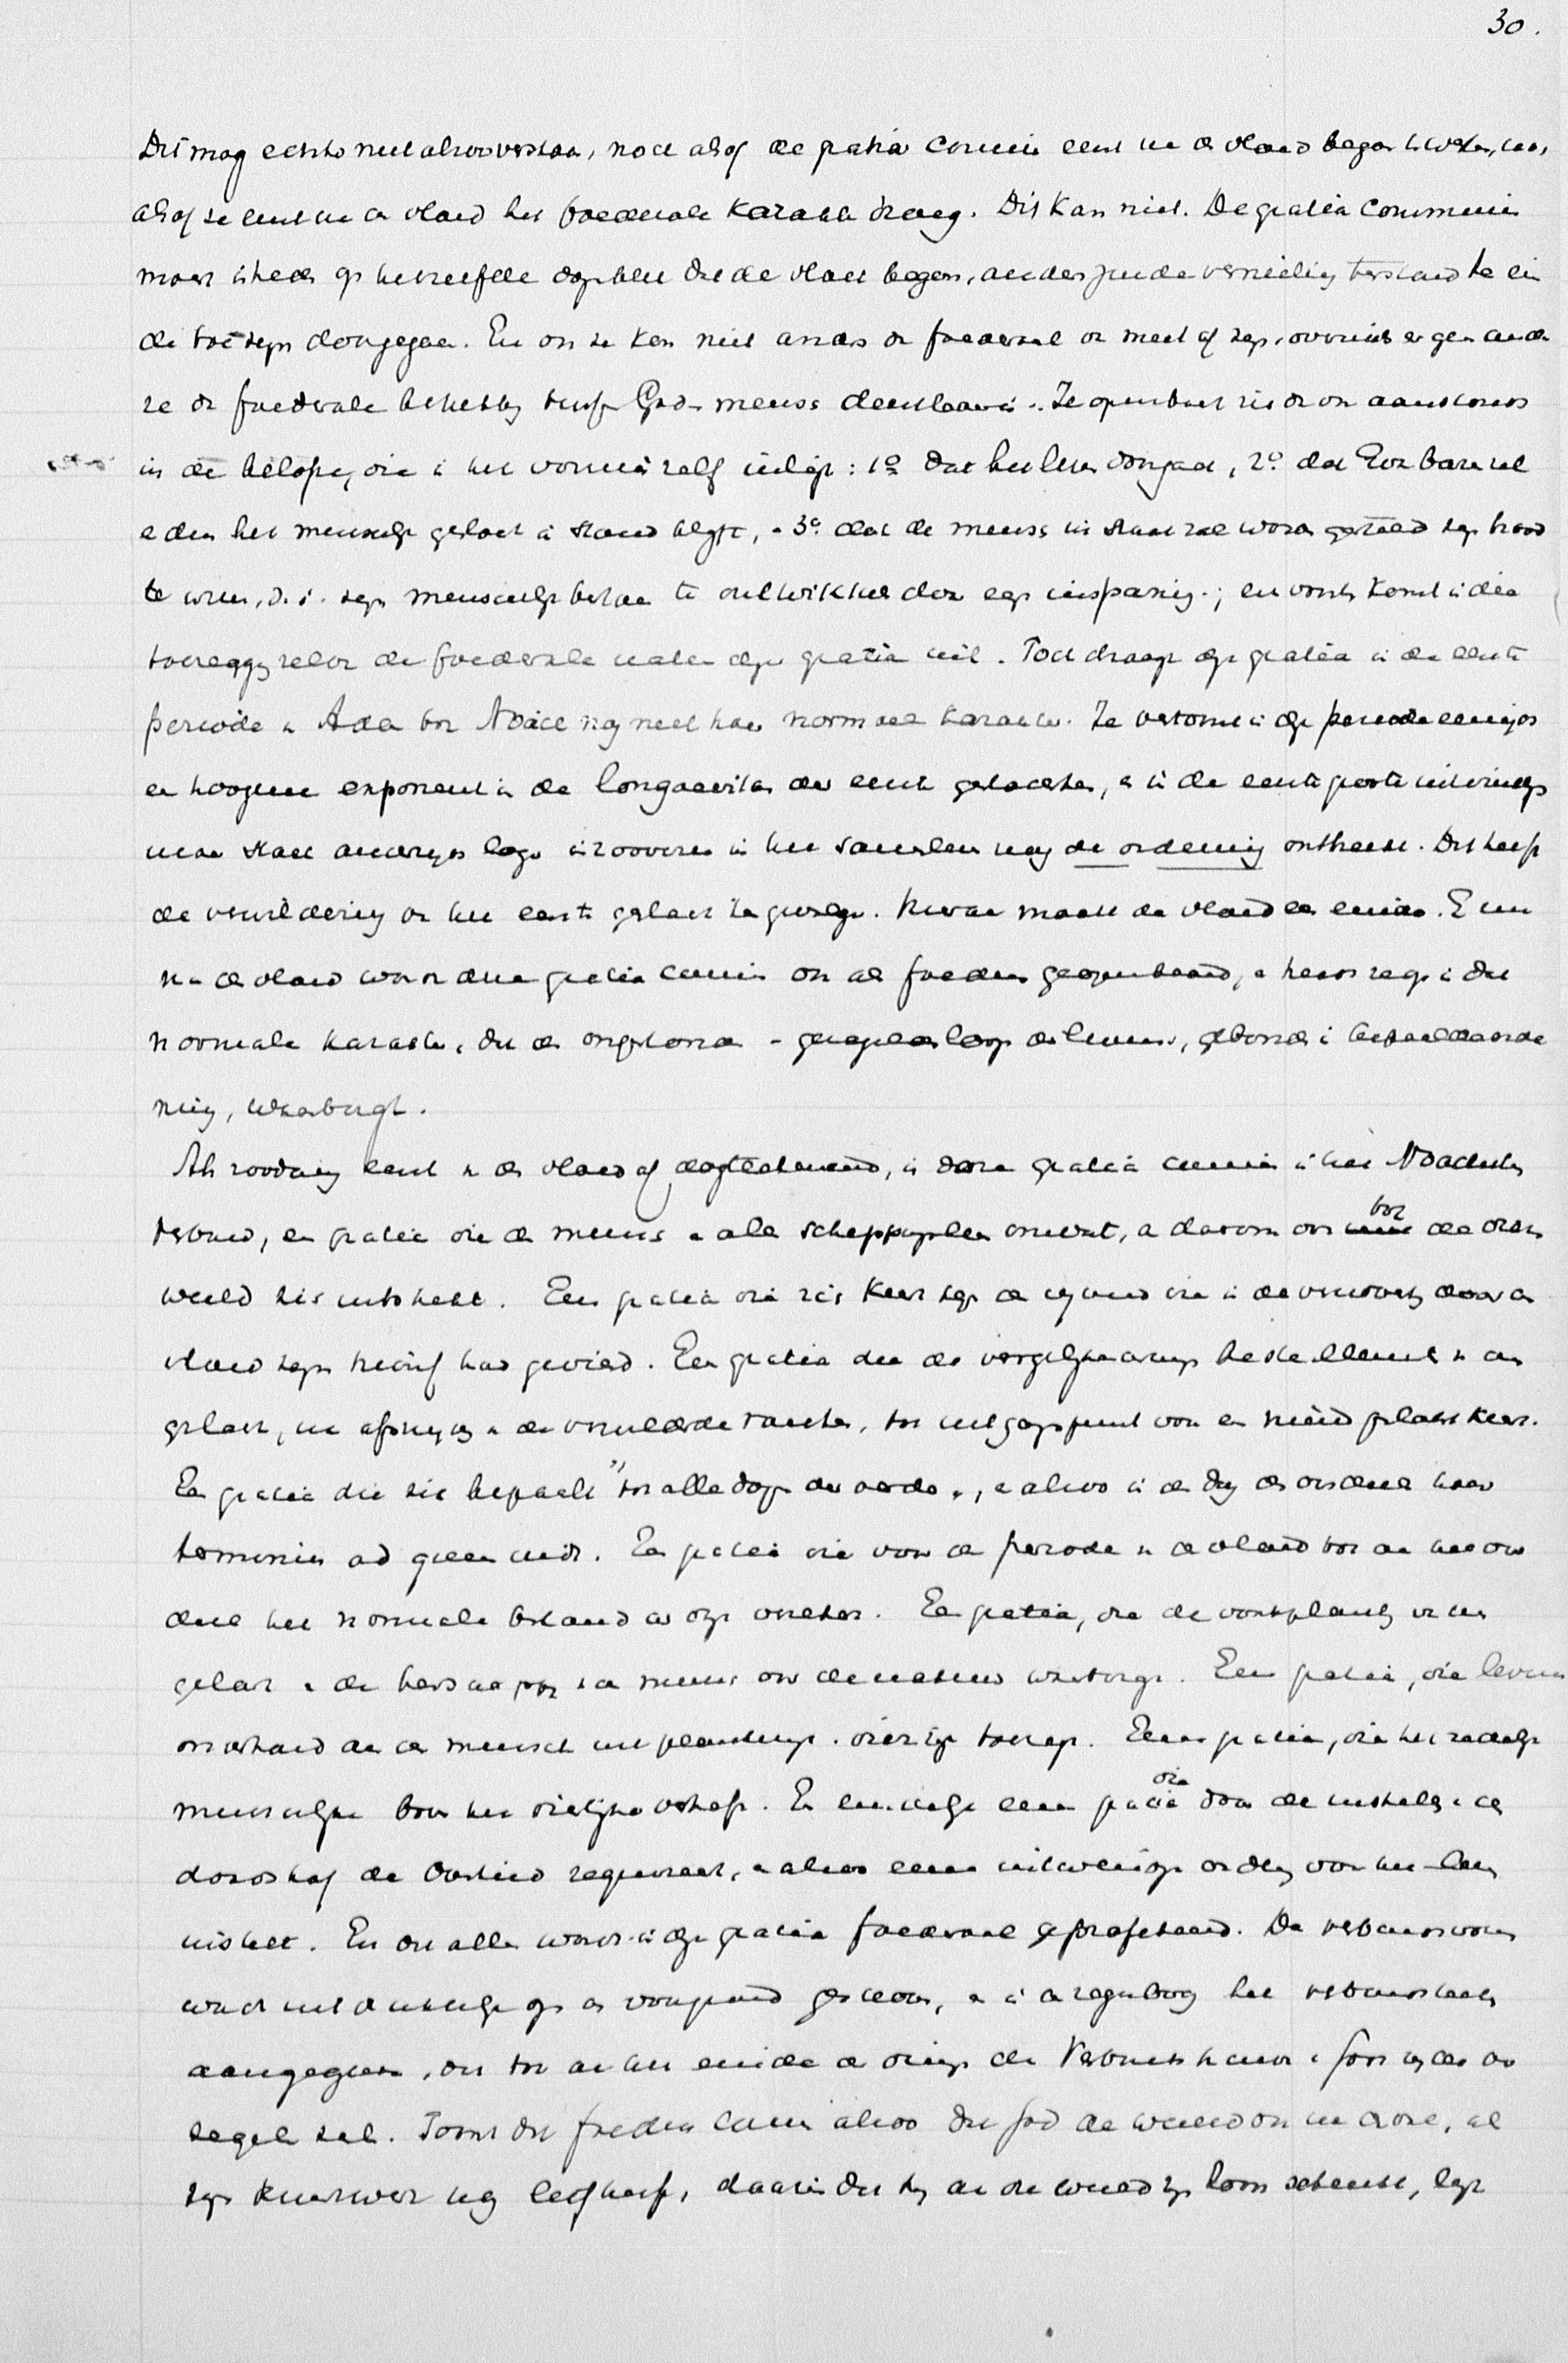 30.
Dit mag echter niet alzoo verstaan, noch alsof de gratia communis eerst na de vloed begon te werken, noch
alsof ze eerst na de vloed het foederale karakter droeg. Dit kan niet. De gratia communis
moet in heel op hetzelfde oogenblik dat de vloek begon, anders zou de vernieling terstond ten ein
de toe zijn doorgegaan. En ook ze kan niet anders dan foederaal van meet af zijn, overmits er geen ande
re dan foederale betrekking tusschen God en mensch denkbaar is. Ze openbaart zich dan ook aanstonds
in de belofte, die in het vonnis zelf inligt: 1º dat het leven doorgaat, 2º dat Eva baren zal
en dus het menschelijk geslacht in stand blijft, en 3º dat de mensch in staat zal worden gesteld zijn brood
te winnen, d.i. zijn menschelijk bestaan te ontwikkelen door eigen inspanning; en voorts komt in die
toezegging zelve de foederale natuur dezer gratia uit. Toch draagt deze gratia in de eerste
periode van Adam tot Noach nog niet haar normaal karakter. Ze vertoont in deze periode eenerzijds
een hoogeren exponent in de longaevitas der eerste geslachten, en in de eerste groote uitvindingen
maar staat anderzijds lager in zooverre in het saamleven nog de ordening ontbreekt. Dit heeft
de verwildering van het eerste geslacht ten gevolge. Hieraan maakt de vloed een einde. En nu
na de vloed wordt deze gratia communis ook als foedus geopenbaard, en treedt ze op in dat
normale karakter, dat de ongestoorde en geregelde loop des levens, gebonden in bepaalde orde
ning, waarborgt.
Als zoodanig eerst na de vloed afgekondigd, is deze gratia communis in het Noachitisch
verbond, een gratia die de mensch en alle schepselen omvat, en daarom ook tot de dieren
wereld zich uitstrekt. Een gratia die zich keert tegen de vijand die in de verwoesting door de
vloed zijn triomf had gevierd. Een gratia die de vergelijkenderwijs beste elementen van dat
geslacht, na afsnijding van de verwilderde takken, tot uitgangspunt voor een nieuw geslacht koos.
Een gratia die zich bepaalt "tot alle dagen der aarde", en alzoo in de dag des oordeels haar
terminus ad quem vindt. Een gratia die voor de periode van de vloed tot aan het oor
deel het normale bestand van orde verzekert. Een gratia, die de voortplanting van het
geslacht en de heerschappij van de mensch over de natuur waarborgt. Een gratia, die levens
onderhoud aan de mensch uit planten en dierenrijk toezegt. Een gratia, die het zedelijk
menschelijke boven het dierlijke verheft. En eindelijk een gratia die door de instelling van de
doodstraf de Overheid requireert, en alzoo eene uitwendige ordening voor het leven
instelt. En dit alles wordt in deze gratia foederaal geprofeteerd. De verbondsvorm
wordt uitdrukkelijk op de voorgrond geschoven, en in de regenboog het verbondsteeken
aangegeven, dat tot aan het einde der dingen de Verbondstrouw van Gods zijde be
zegelen zal. Toont dit foedus communis alzoo dat God de wereld ook in de zonde, als
zijn kunstwerk nog lief heeft, daarin dat hij aan de wereld zijn Zoon schenkt, ligt